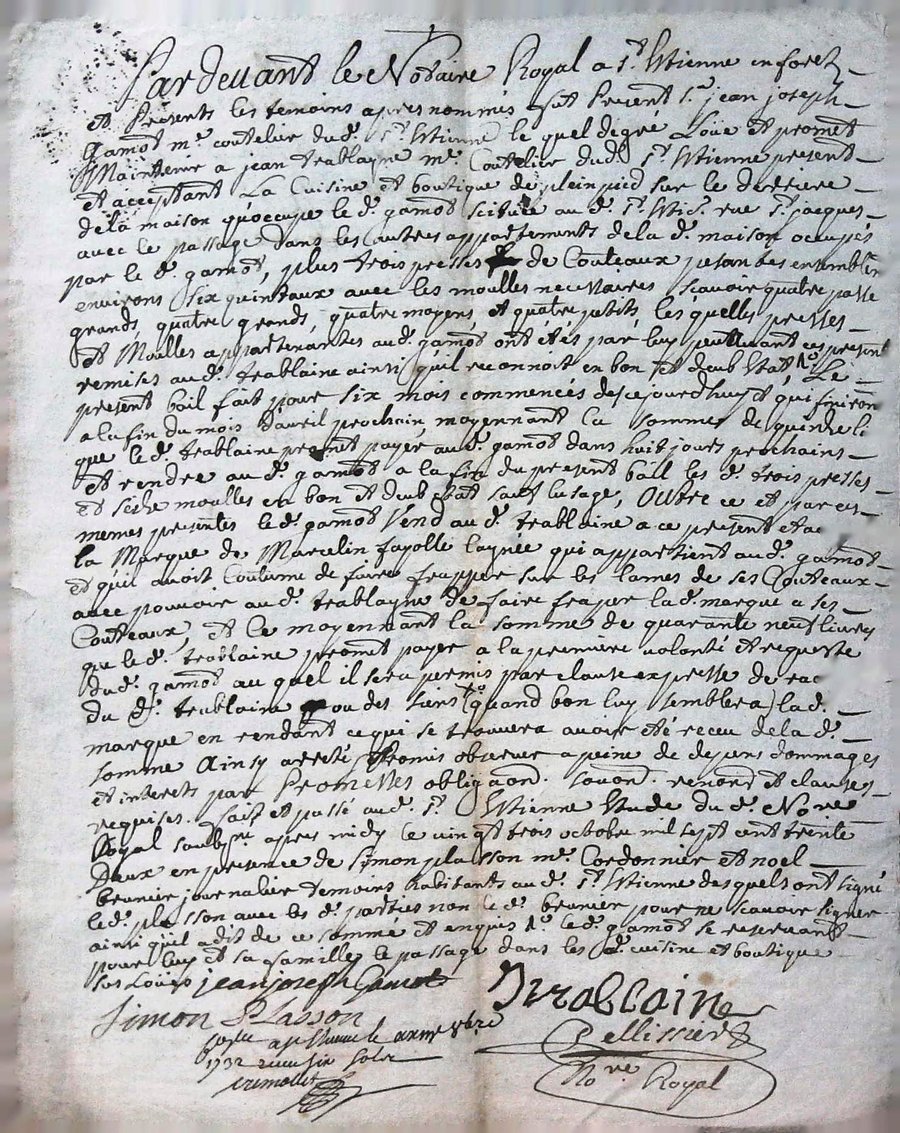 Pardevant le Notaire Royal a st. Etienne en forez
et Presents les temoins apres nommés fut Present sr. jean joseph
gamot me. coutelier dud. st. Etienne le quel de gré Loüe et promet
Maintenir a jean trablayne me. Coutelier dud. st. Etienne present
et acceptant La Cuisine et boutique de plein pied sur le derriere
dela maison qu'occupe le d. gamot scituée au d. st. Eti. rue st. jacques
avec le passage dans les autres appartements dela d. maison occupés
par le d. gamot, plus trois presses de Couteaux pesan des ensemble
environs six quintaux avec les moulles necessaires scavoir quatre passe
grands, quatre grands, quatre moyens et quatre petits, les quelles presses
et Moulles appartenantes aud. gamot ont étés par luy cy present
remises aud. trablaine ainsi qu'il reconnoit en bon et deub Etat, Le
present bail fait pour six mois commencés des ce jourdhuy et qui finiron
a la fin du mois d'avril prochain moyennant la somme de quinze l.
que le d. trablaine promet payer aud. gamot dans huit jours prochains
et rendre aud. gamot a la fin du present bail les d. trois presses
et seize moulles en bon et deub etat sauf lusage, Outre ce et par ces
memes presentes le d. gamot Vend aud. trablaine a ce present et ac
la Marque de Marcelin fayolle laynée qui appartient aud. gamot
et qu'il avoit Coutume de faire frapper sur les lames de ses Couteaux
avec pouvoir aud. trablayne de faire fraper lad. marque a ses
Couteaux, et ce moyennant la somme de quarante neuf livres
que le d. trablaine promet payer a la premiere volonté et requeste
dud. gamot au quel il sera permis par clause expresse de rac
du d. trablaine ou des siens (quand bon luy semblera) la d.
marque en rendant ce qui se trouvera avoir été receu dela d.
somme Ainsy arreté Promis observer a peine de depens dommages
et interets par Promesses obligaond. soumond. renond et clauses
requises. fait et passé aud. st. Etienne Etude du d. Nore
Royal soubsne. apres midy le vingt trois octobre mil sept cent trente
Deux en presence de Simon plasson me. Cordonnier et noel
brunier journalier temoins habitants aud. st. Etienne desquels ont signé
le d. plasson avec les d. parties non le d. brunier pour ne scavoir signer
ainsi qu'il a dit de ce somme et enquis le d. gamot se reservant
pour luy et sa famille le passage dans les d. cuisine et boutique
sus Loüés jean joseph Gamot
trablaine
Simon Plasson
a st Etienne le 8bre
1732 receu six sols
Pellissier
Nore Royal